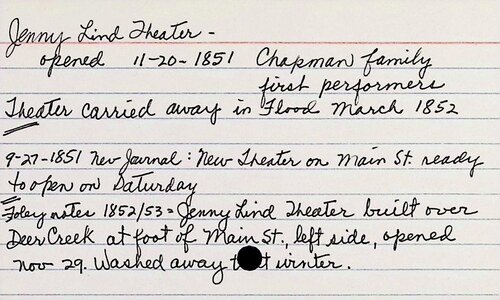 Jenny Lind Theater -
opened 11-20-1851 Chapman family
first performers
Theater carried away in Flood March 1852
9-27-1851 Nev Journal: New Theater on Main St. ready
to open on Saturday
Foley notes 1852/53 = Jenny Lind Theater built over
Deer Creek at foot of Main St., left side, opened
Nov 29. Washed away winter.